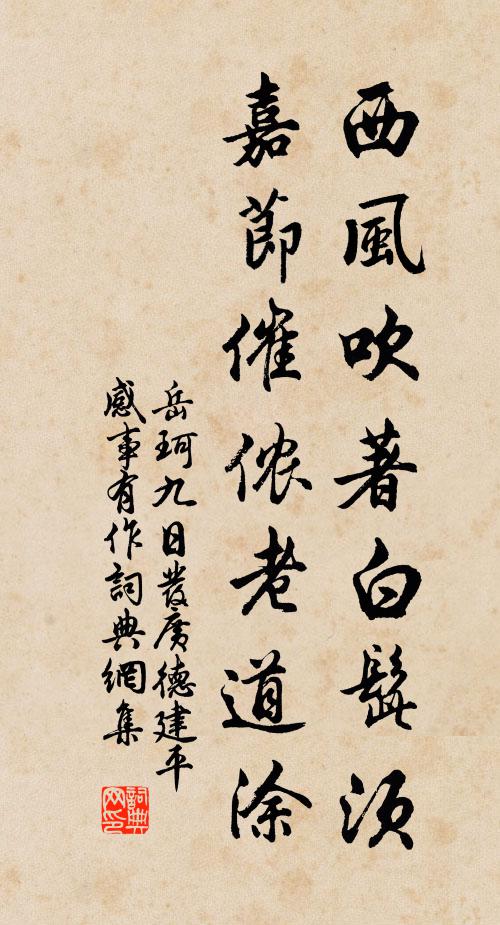 西風吹著白髭須
嘉節催侬老道涂
岳珂九日發廣德建平
感事有作詞典網集
詞典网印